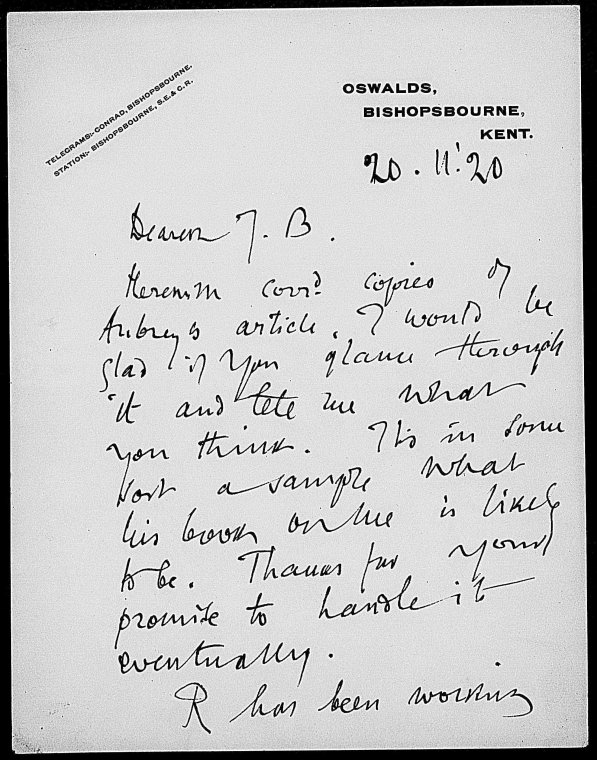 TELEGRAMS:- CONRAD, BISHOPSBOURNE.
STATION:- BISHOPSBOURNE, S.E. & C.R.
OSWALDS,
BISHOPSBOURNE,
KENT.
20.11.'20
Dearest J. B.
Herewith corrd copies of
Aubrey's article. I would be
glad if you glance through
it and lete me what
you think. It's in some
sort a sample what
his book on me is likely
to be. Thanks for your
promise to handle it
eventually.
R has been working